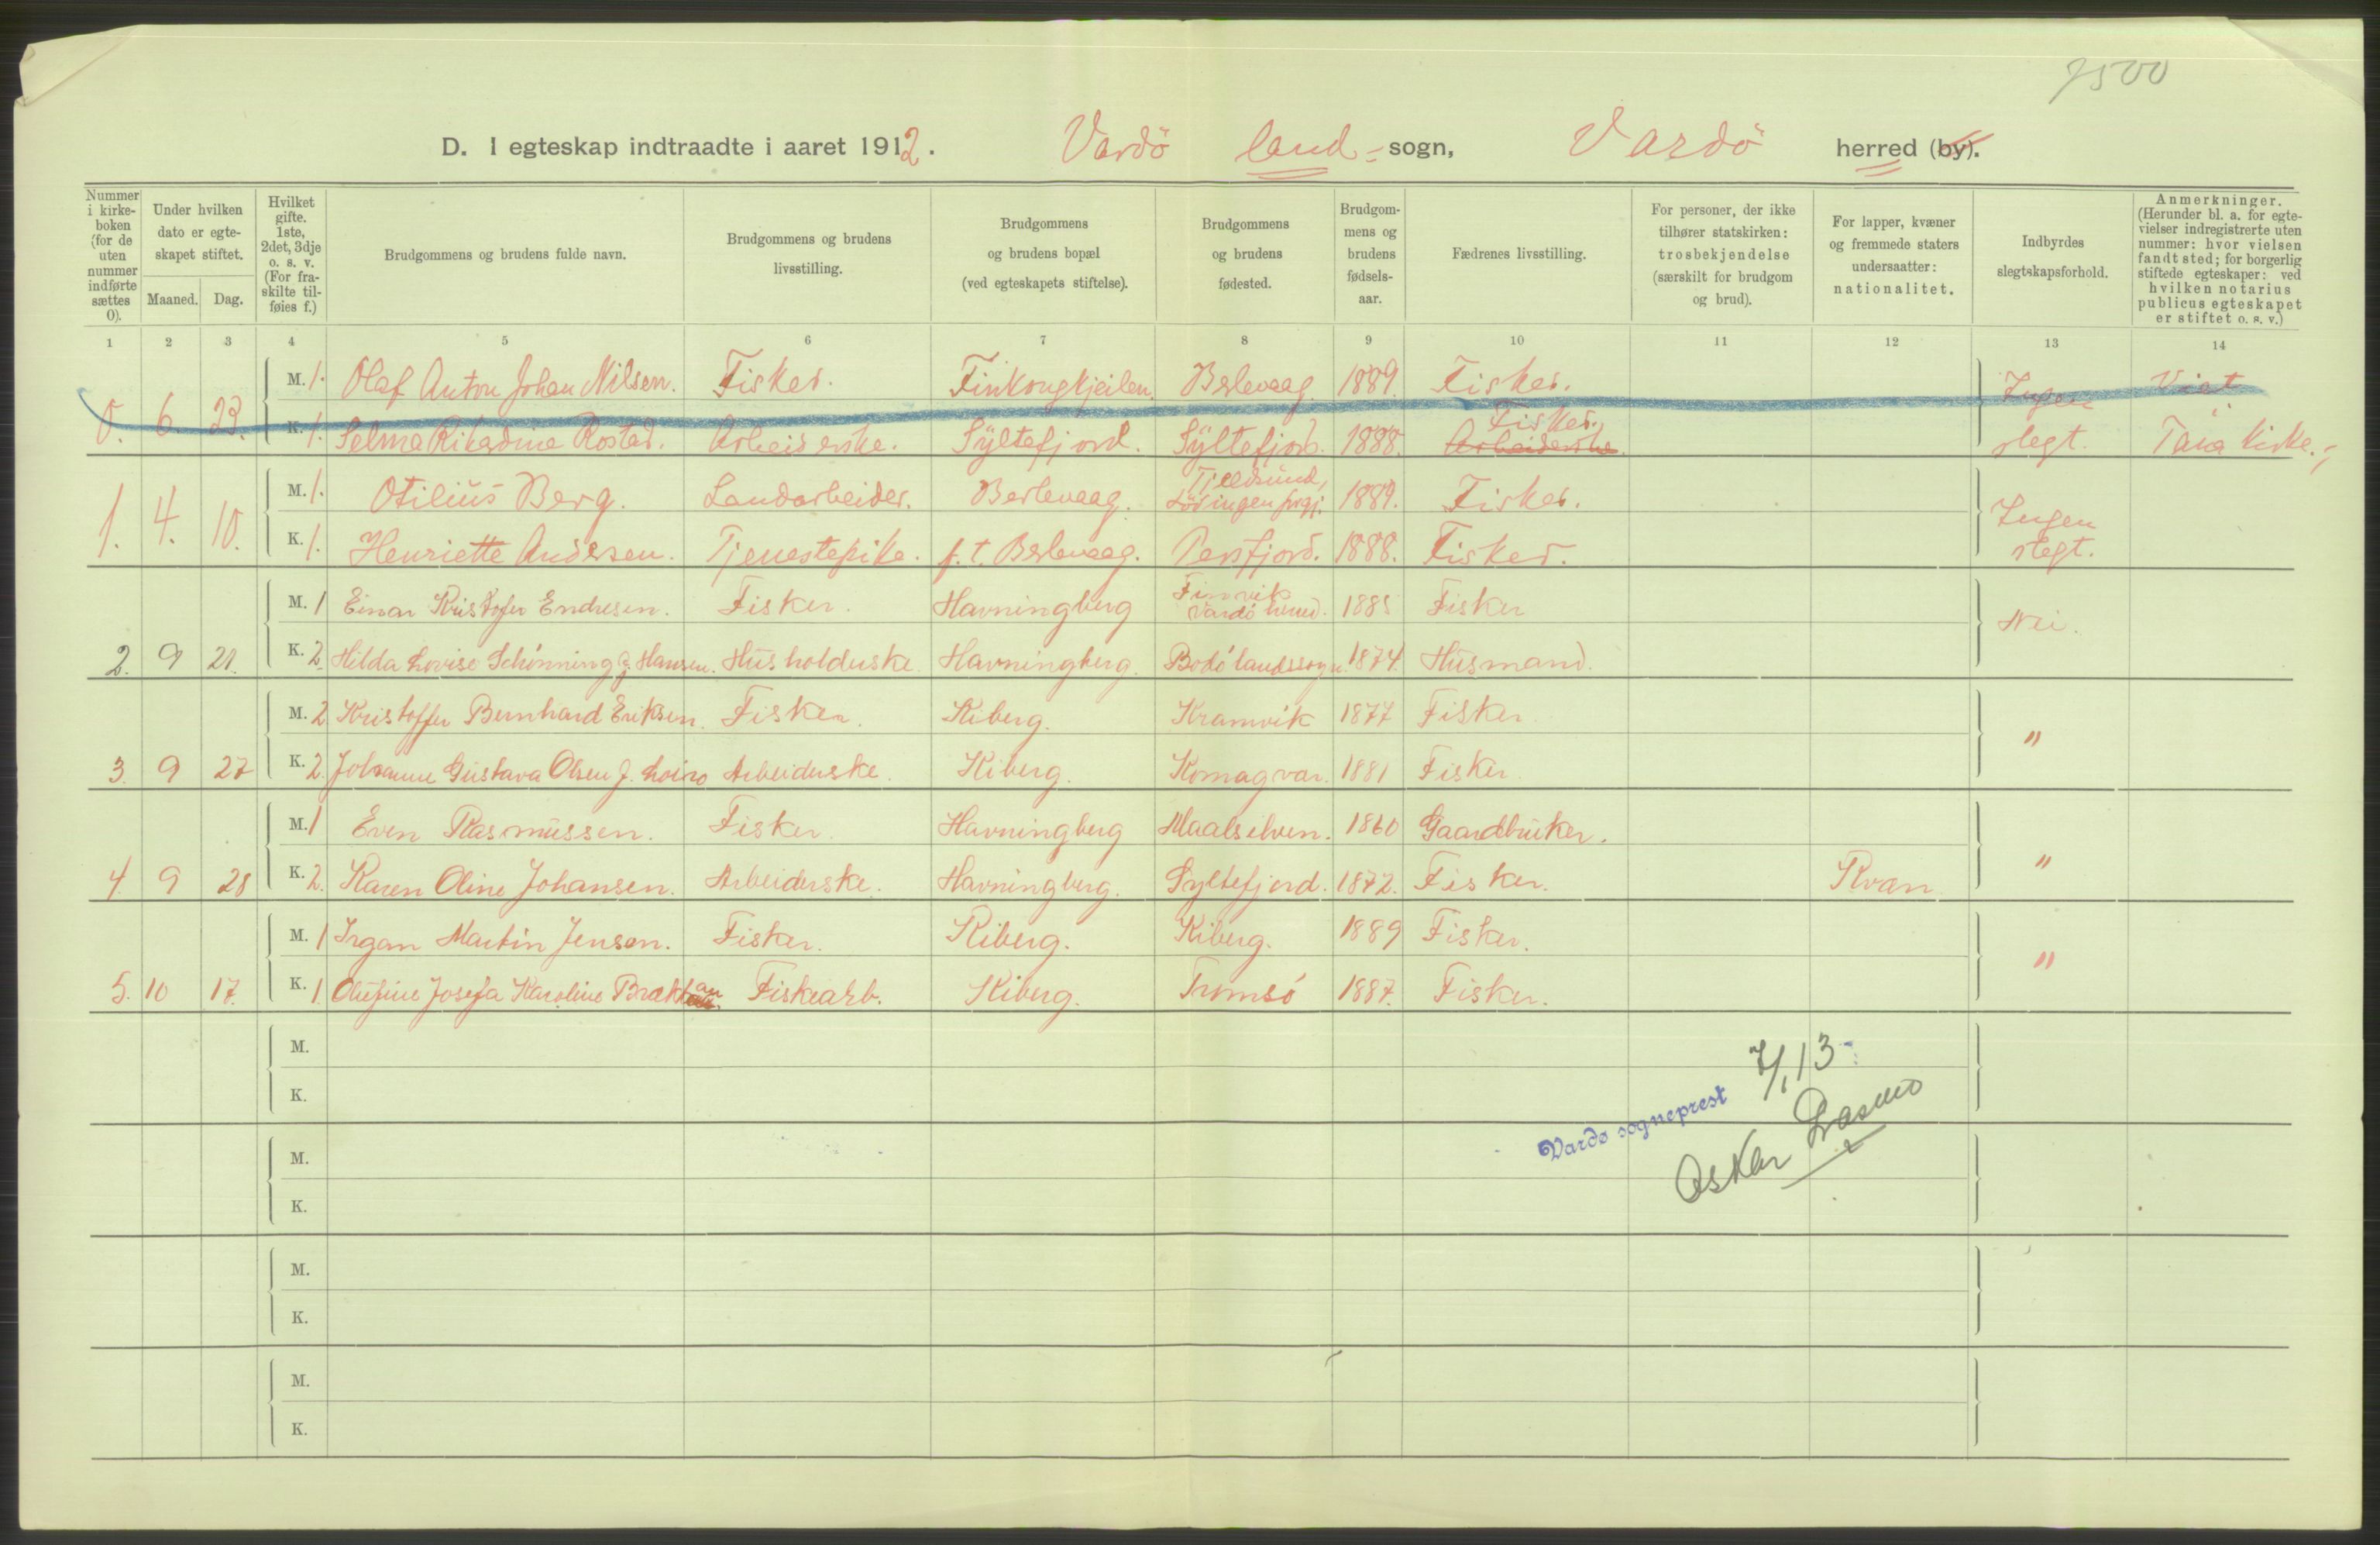 7500
D. I egteskap indtraadte i aaret 1912. Vardö land- sogn, Vardö herred (by).
Nummer i kirke-boken (for de uten nummer indførte sættes 0).
Under hvilken dato er egte-skapet stiftet.
Maaned. Dag.
Hvilket gifte. 1ste, 2det, 3dje o. s. v. (For fra-skilte til-føies f.)
Brudgommens og brudens fulde navn.
Brudgommens og brudens livsstilling.
Brudgommens og brudens bopæl (ved egteskapets stiftelse).
Brudgommens og brudens fødested.
Brudgom-mens og brudens fødsels-aar.
Fædrenes livsstilling.
For personer, der ikke tilhører statskirken: trosbekjendelse (særskilt for brudgom og brud).
For lapper, kvæner og fremmede staters undersaatter: nationalitet.
Indbyrdes slegtskapsforhold.
Anmerkninger. (Herunder bl. a. for egte-vielser indregistrerte uten nummer: hvor vielsen fandt sted; for borgerlig stiftede egteskaper: ved hvilken notarius publicus egteskapet er stiftet o. s. v.)
1 2 3 4 5 6 7 8 9 10 11 12 13 14
M. 1. Olaf Anton Johan Nilsen. Fisker. Finkongkjeilen. Berlevaag. 1889. Fisker. Ingen Viet
0. 6. 23. K. 1. Selma Rikardine Rostad. Arbeiderske. Syltefjord. Syltefjord. 1888. Arbeiderske. Fisker. slegt. Tana kirke.
M. 1. Otilius Berg. Landarbeider. Berlevaag. Tjeldsund, Lödingen prgj. 1889. Fisker. Ingen
1. 4. 10. K. 1. Henriette Andersen. Tjenestepike. p. t. Berlevaag. Persfjord. 1888. Fisker. slegt.
M. 1 Einar Kristofer Endresen. Fisker. Havningberg Finvik Vardö herred. 1885 Fisker Nei.
2. 9 21. K. 2. Hilda Lovise Schönning g. Hansen. Husholderske Havningberg. Bodö landssogn. 1874. Husmand.
M. 2 Kristoffer Bernhard Eriksen. Fisker. Kiberg. Kramvik 1877 Fisker "
3. 9 27 K. 2. Johanne Gustava Olsen f. Loiro Arbeiderske. Kiberg. Komagvær. 1881 Fisker.
M. 1 Even Rasmussen. Fisker. Havningberg Maalselven. 1860 Gaardbruker. "
4. 9 28 K. 2. Karen Oline Johansen. Arbeiderske. Havningberg. Syltefjord. 1872. Fisker. Kvan
M. 1 Irgan Martin Jensen. Fisker. Kiberg. Kiberg. 1889 Fisker. "
5. 10 17. K. 1. Olufine Josefa Karoline Brækkan Fiskearb. Kiberg. Tromsö 1887. Fisker.
M.
K.
M.
K.
M.
K.
M.
K.
7/1 13
Vardø sogneprest
Oskar